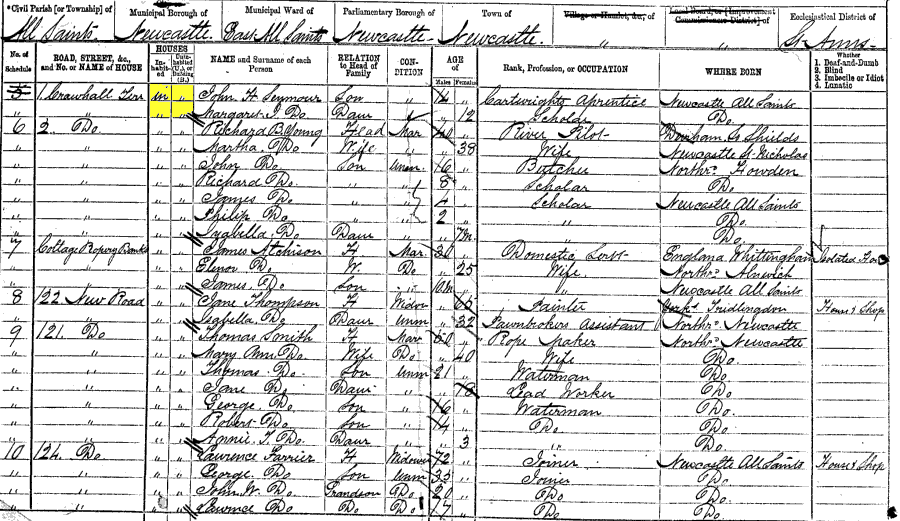 *Civil Parish [or Township] of Municipal Borough of Municipal Ward of Parliamentary Borough of Town of Village or Hamlet, &c., of Local Board, or [Improvement Commissioners District] of Ecclesiastical District of
All Saints Newcastle East All Saints Newcastle Newcastle " " St Anns
No. of Schedule ROAD, STREET, &c., and No. or NAME of HOUSE HOUSES In-habited NAME and Surname of each Person RELATION to Head of Family CON-DITION AGE of Males Females Rank, Profession, or OCCUPATION WHERE BORN Whether 1. Deaf-and-Dumb 2. Blind 3. Imbecile or Idiot 4. Lunatic
5 1 Crawhall Terr in " John H Seymour Son " 14 Cartwrights Aprentice Newcastle All Saints
" " " " Margaret I. Do Daur 12 Scholar Do.
6 2. Do " " Richard B. Young Head Mar 40 River Pilot Durham. S Shields
" " " " Martha Do Wife " 38 Wife Newcastle St Nicholas
" " " " John Do. Son Unm. 16 Butcher Northr. Howden
" " " " Richard Do. " " 8 Scholar Do.
" " " " James Do. " " Scholar Newcastle All Saints
" " " " Philip Do " " 2 " Do.
" " " " Isabella Do Daur 7m Do.
7 Cottage Ropery Banks " " James Atchison H. Mar. 30 Domestic Servt England Whittingham Isolated
" " " " Elenor Do W. Do. 25 Wife Northr. Alnwick
" " " " James. Do Son 10m " Newcastle All Saints
8 122 New Road " " Jane Thompson H Widow 65 House & Shop
" " " " Isabella. Do Daur Unm 32 Pawnbrokers Assistant Northr. Newcastle
9 121. Do " " Thomas Smith H. Mar 50 Rope Maker Northr. Newcastle
" " " " Mary Ann. Do Wife Do. 40 Wife Do.
" " " " Thomas Do. Son Unm 21 Waterman Do.
" " " " Jane Do. Daur " 18 Lead Worker Do.
" " " " George. Do Son " 16 Waterman Do.
" " " " Robert. Do Son " 14 Do. Do.
" " " " Annie I. Do. Daur 3 " Do.
10 124. Do " " Lawrence Farrier H Widower 72 Joiner Newcastle All Saints House & Shop
" " " " George. Do Son Unm 35 Joiner Do.
" " " " John W. Do. Grandson Do. 20 Do. Do.
" " " " Lawrence Do Do. Do. 17 Do. Do.